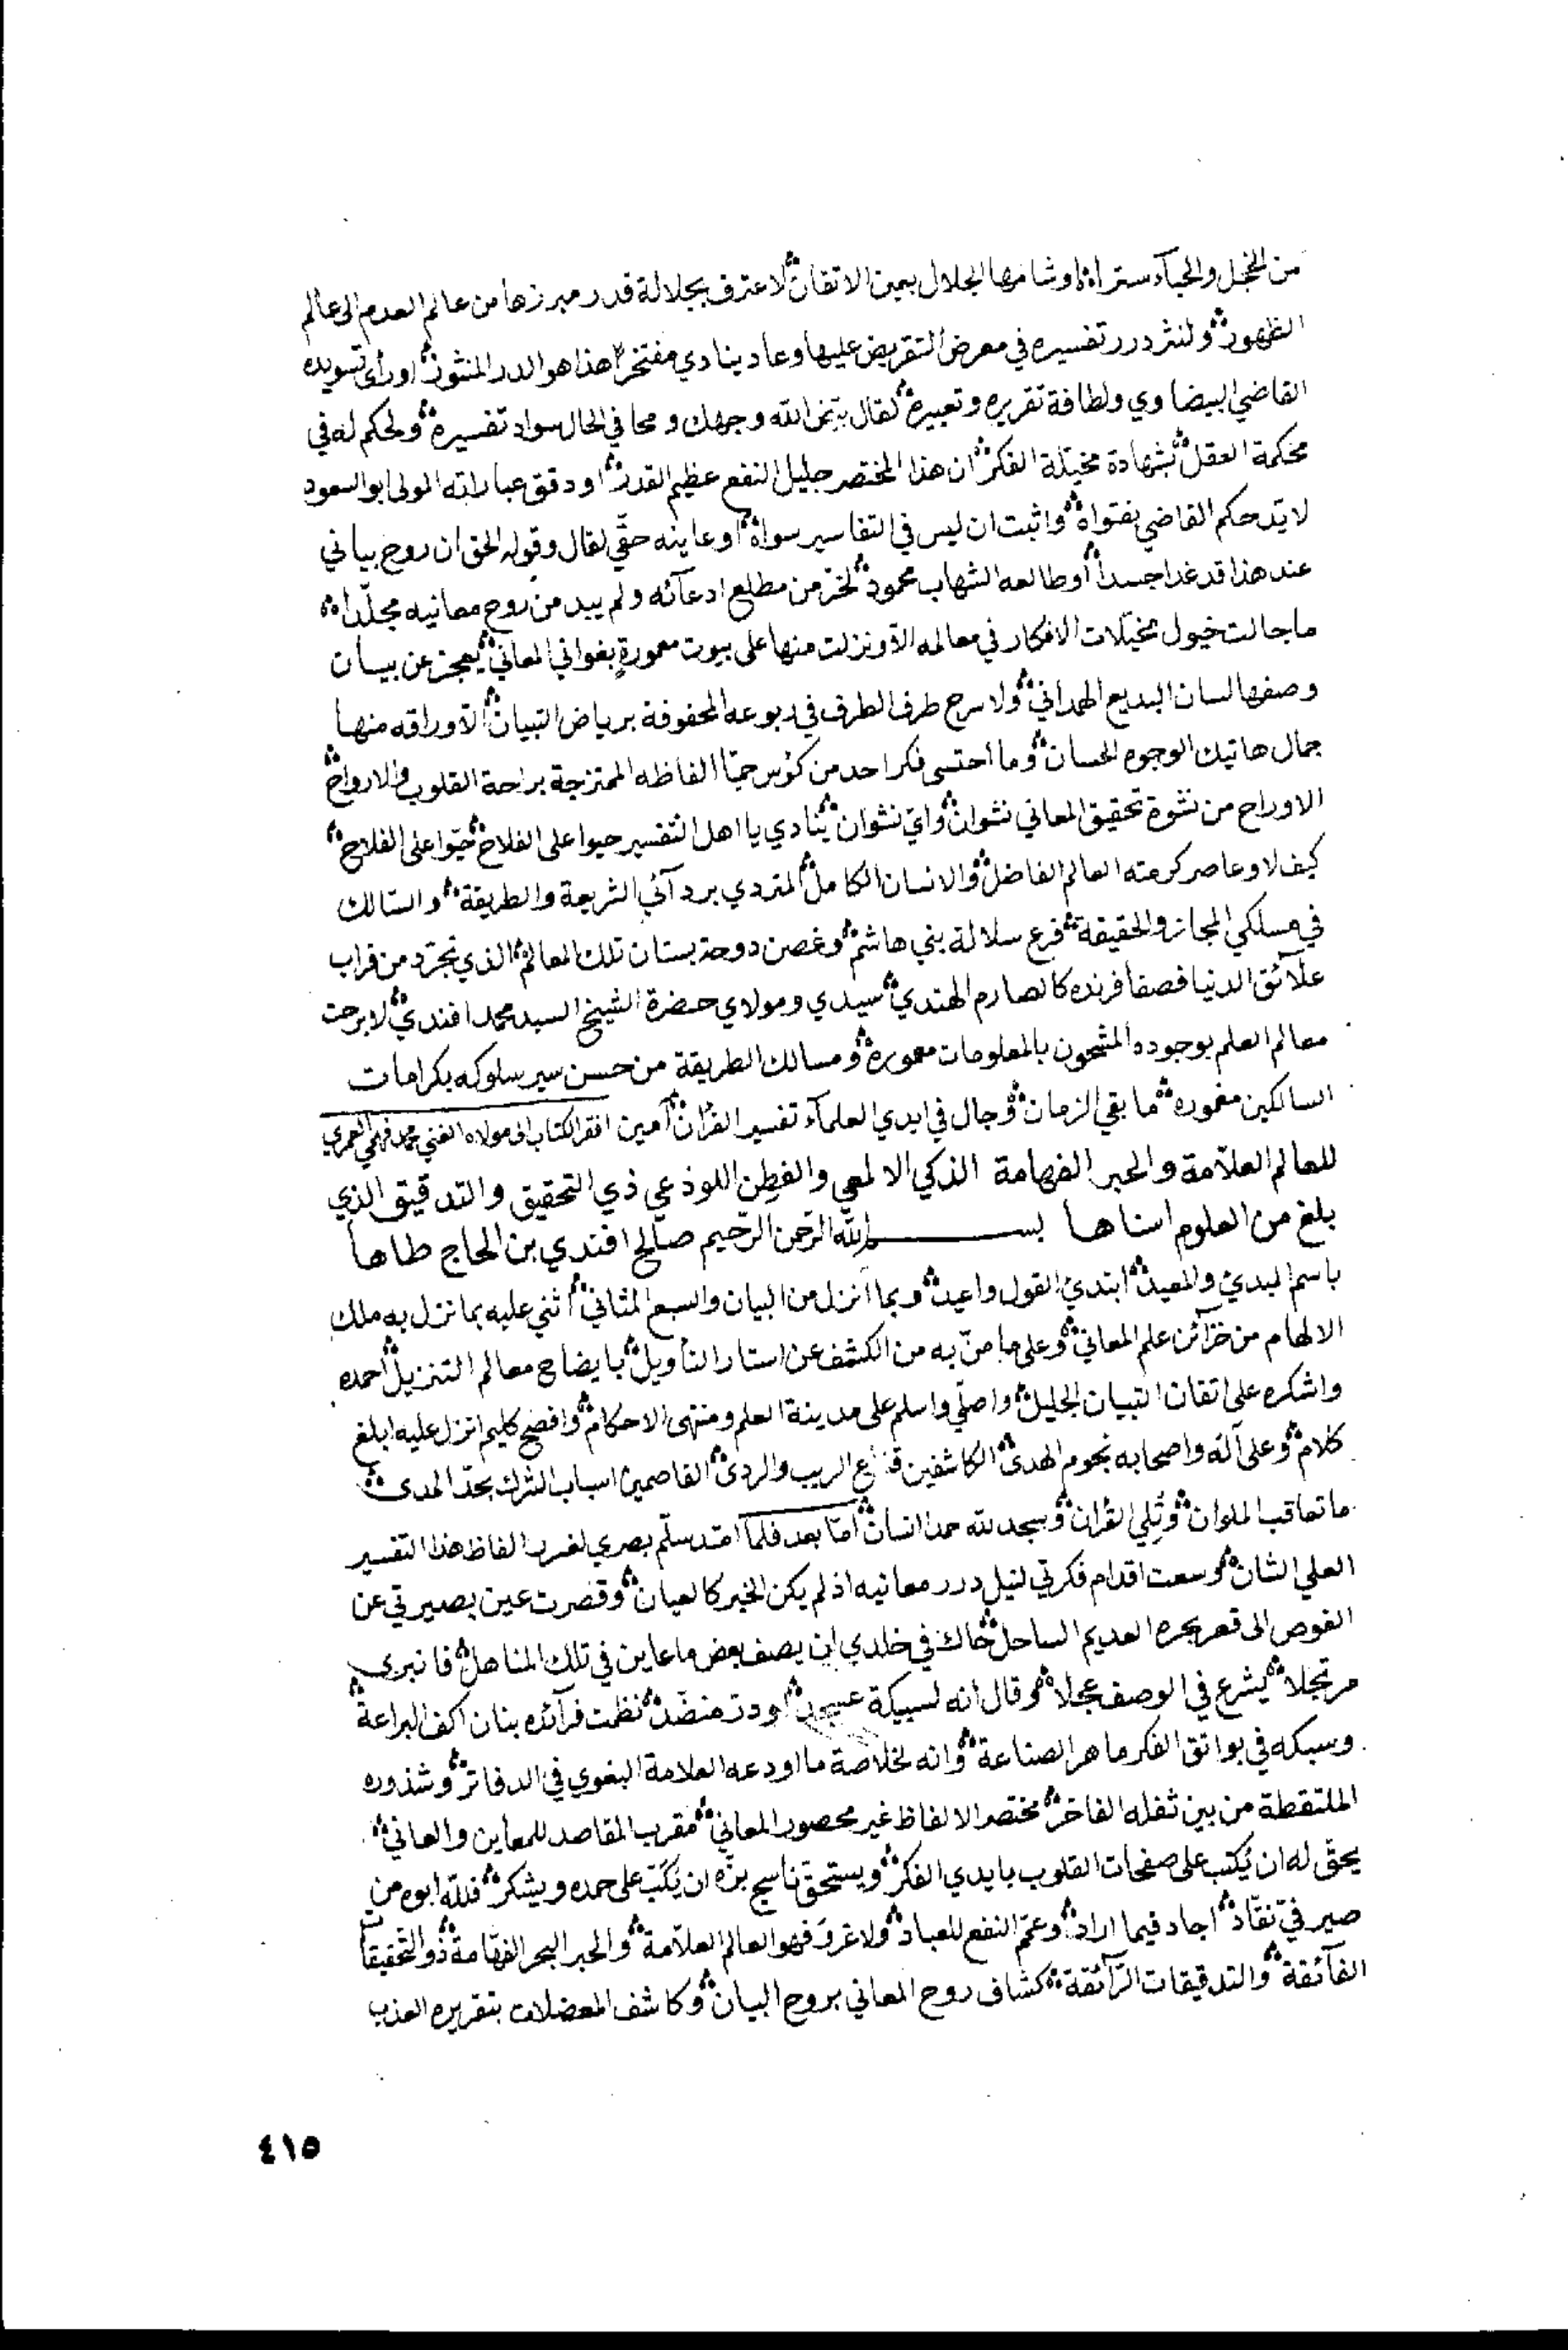 من الخجل والحيآء ستراه اوشامها الجلال بيمين الاتقان لاعترف بجلالة قدر مبرزها من عالم العدم الى عالم
الظهور ولنثر درر تفسيره في معرض التقريض عليها وعاد ينادي مفتخرا هذا هو الدر المنثور اورأى تسويده
القاضي البيضاوي ولطافة تقريره وتعبيره لقال بيّض الله وجهك ومحا في الحال سواد تفسيره ولحكم له في
محكمة العقل بشهادة مخيّلة الفكر ان هذا المختصر جليل النفع عظيم القدر اودقق عباراته المولى ابو السعود
لايّد حكم القاضي بفتواه واثبت ان ليس في التفاسير سواه اوعاينه حقّي لقال وقوله الحق ان روح بياني
عند هذا قد غدا جسدا أوطالعه الشهاب محمود لخرّ من مطلع ادعآئه ولم يبد من روح معانيه مجلّدا
ماجالت خيول مخيّلات الافكار في معالمه الّا ونزلت منها على بيوت معمورةٍ بغواني المعاني يعجز عن بيان
وصفها لسان البديع الهمداني ولا سرح طرف الطرف في ربوعه المحفوفة برياض التبيان الّا وراقه منها
جمال هاتيك الوجوه الحسان وما احتسى فكر احد من كؤس حميّا الفاظه الممتزجة براحة القلوب والارواح
الاوراح من نشوة تحقيق المعاني نشوان وايّ نشوان ينادي يا اهل التفسير حيوا على الفلاح حيّوا على الفلاح
كيف لا وعاصر كرمته العالم الفاضل والانسان الكامل المتردي بردآئي الشريعة والطريقة والسالك
في مسلكي المجاز والحقيقة فرع سلالة بني هاشم وغصن دوحة بستان تلك المعالم الذي تجرّد من قراب
علآئق الدنيا فصفا فرنده كالصارم الهندي سيدي ومولاي حضرة الشيخ السيد محمد افندي لابرحت
معالم العلم بوجوده المشحون بالمعلومات معموره ومسالك الطريقة من حسن سير سلوكه بكرامات
السالكين مغموره ما بقي الزمان وجال في ايدي العلمآء تفسير القرآن آمين افقر الكتاب الى مولاه الغني محمد فهمي العمري
للعالم العلاّمة والحبر الفهامة الذكي الالمعي والفطِن اللوذعي ذي التحقيق والتدقيق الذي
بلغ من العلوم اسناها بسم الله الرّحمن الرّحيم صالح افندي بن الحاج طاها
باسم المبدئ والمعيد ابتدئ القول واعيد وبما انزل من البيان والسبع المثاني أثني عليه بما نزل به ملك
الالهام من خزآئن علم المعاني وعلى ما منّ به من الكشف عن استار التأويل بايضاح معالم التنزيل احمده
واشكره على اتقان التبيان الجليل واصلّي واسلم على مدينة العلم ومنتهى الاحكام وافصح كليم انزل عليه ابلغ
كلام وعلى آله واصحابه نجوم الهدى الكاشفين قناع الريب والردى القاصمين اسباب الشرك بحدّ المدى
ما تعاقب الملوان وتُلي القرآن وسجد لله حمدا انسان امّا بعد فلمّا امتد سلّم بصري لغرب الفاظ هذا التفسير
العلي الشان وسعت اقدام فكرتي لنيل درر معانيه اذ لم يكن الخبر كالعيان وقصرت عين بصيرتي عن
الغوص الى قعر بحره العديم الساحل حاك في خلدي ان يصف بعض ما عاين في تلك المناهل فانبرى
مرتجلا يشرع في الوصف عجلا وقال انه لسبيكة عسجد اودرّ منضّد نظمت فرآئده بنان اكف البراعة
وسبكه في بواتق الفكر ماهر الصناعة وانه لخلاصة ما اودعه العلامة البغوي في الدفاتر وشذوره
الملتقطة من بين ثفله الفاخر مختصر الالفاظ غير محصور المعاني مقرب المقاصد للمعاين والعاني
يحقّ له ان يُكتب على صفحات القلوب بايدي الفكر ويستحقّ ناسج بزّه ان يُكتب على حمده ويشكر فللّه ابوه من
صيرفيّ نقّاد اجاد فيما اراد وعمّ النفع للعباد ولا غروَ فهو العالم العلاّمة والحبر البحر الفهّامة ذو التحقيقات
الفآئقة والتدقيقات الرّآئقة كشاف روح المعاني بروح البيان وكاشف المعضلات بتقريره العذب
٤١٥